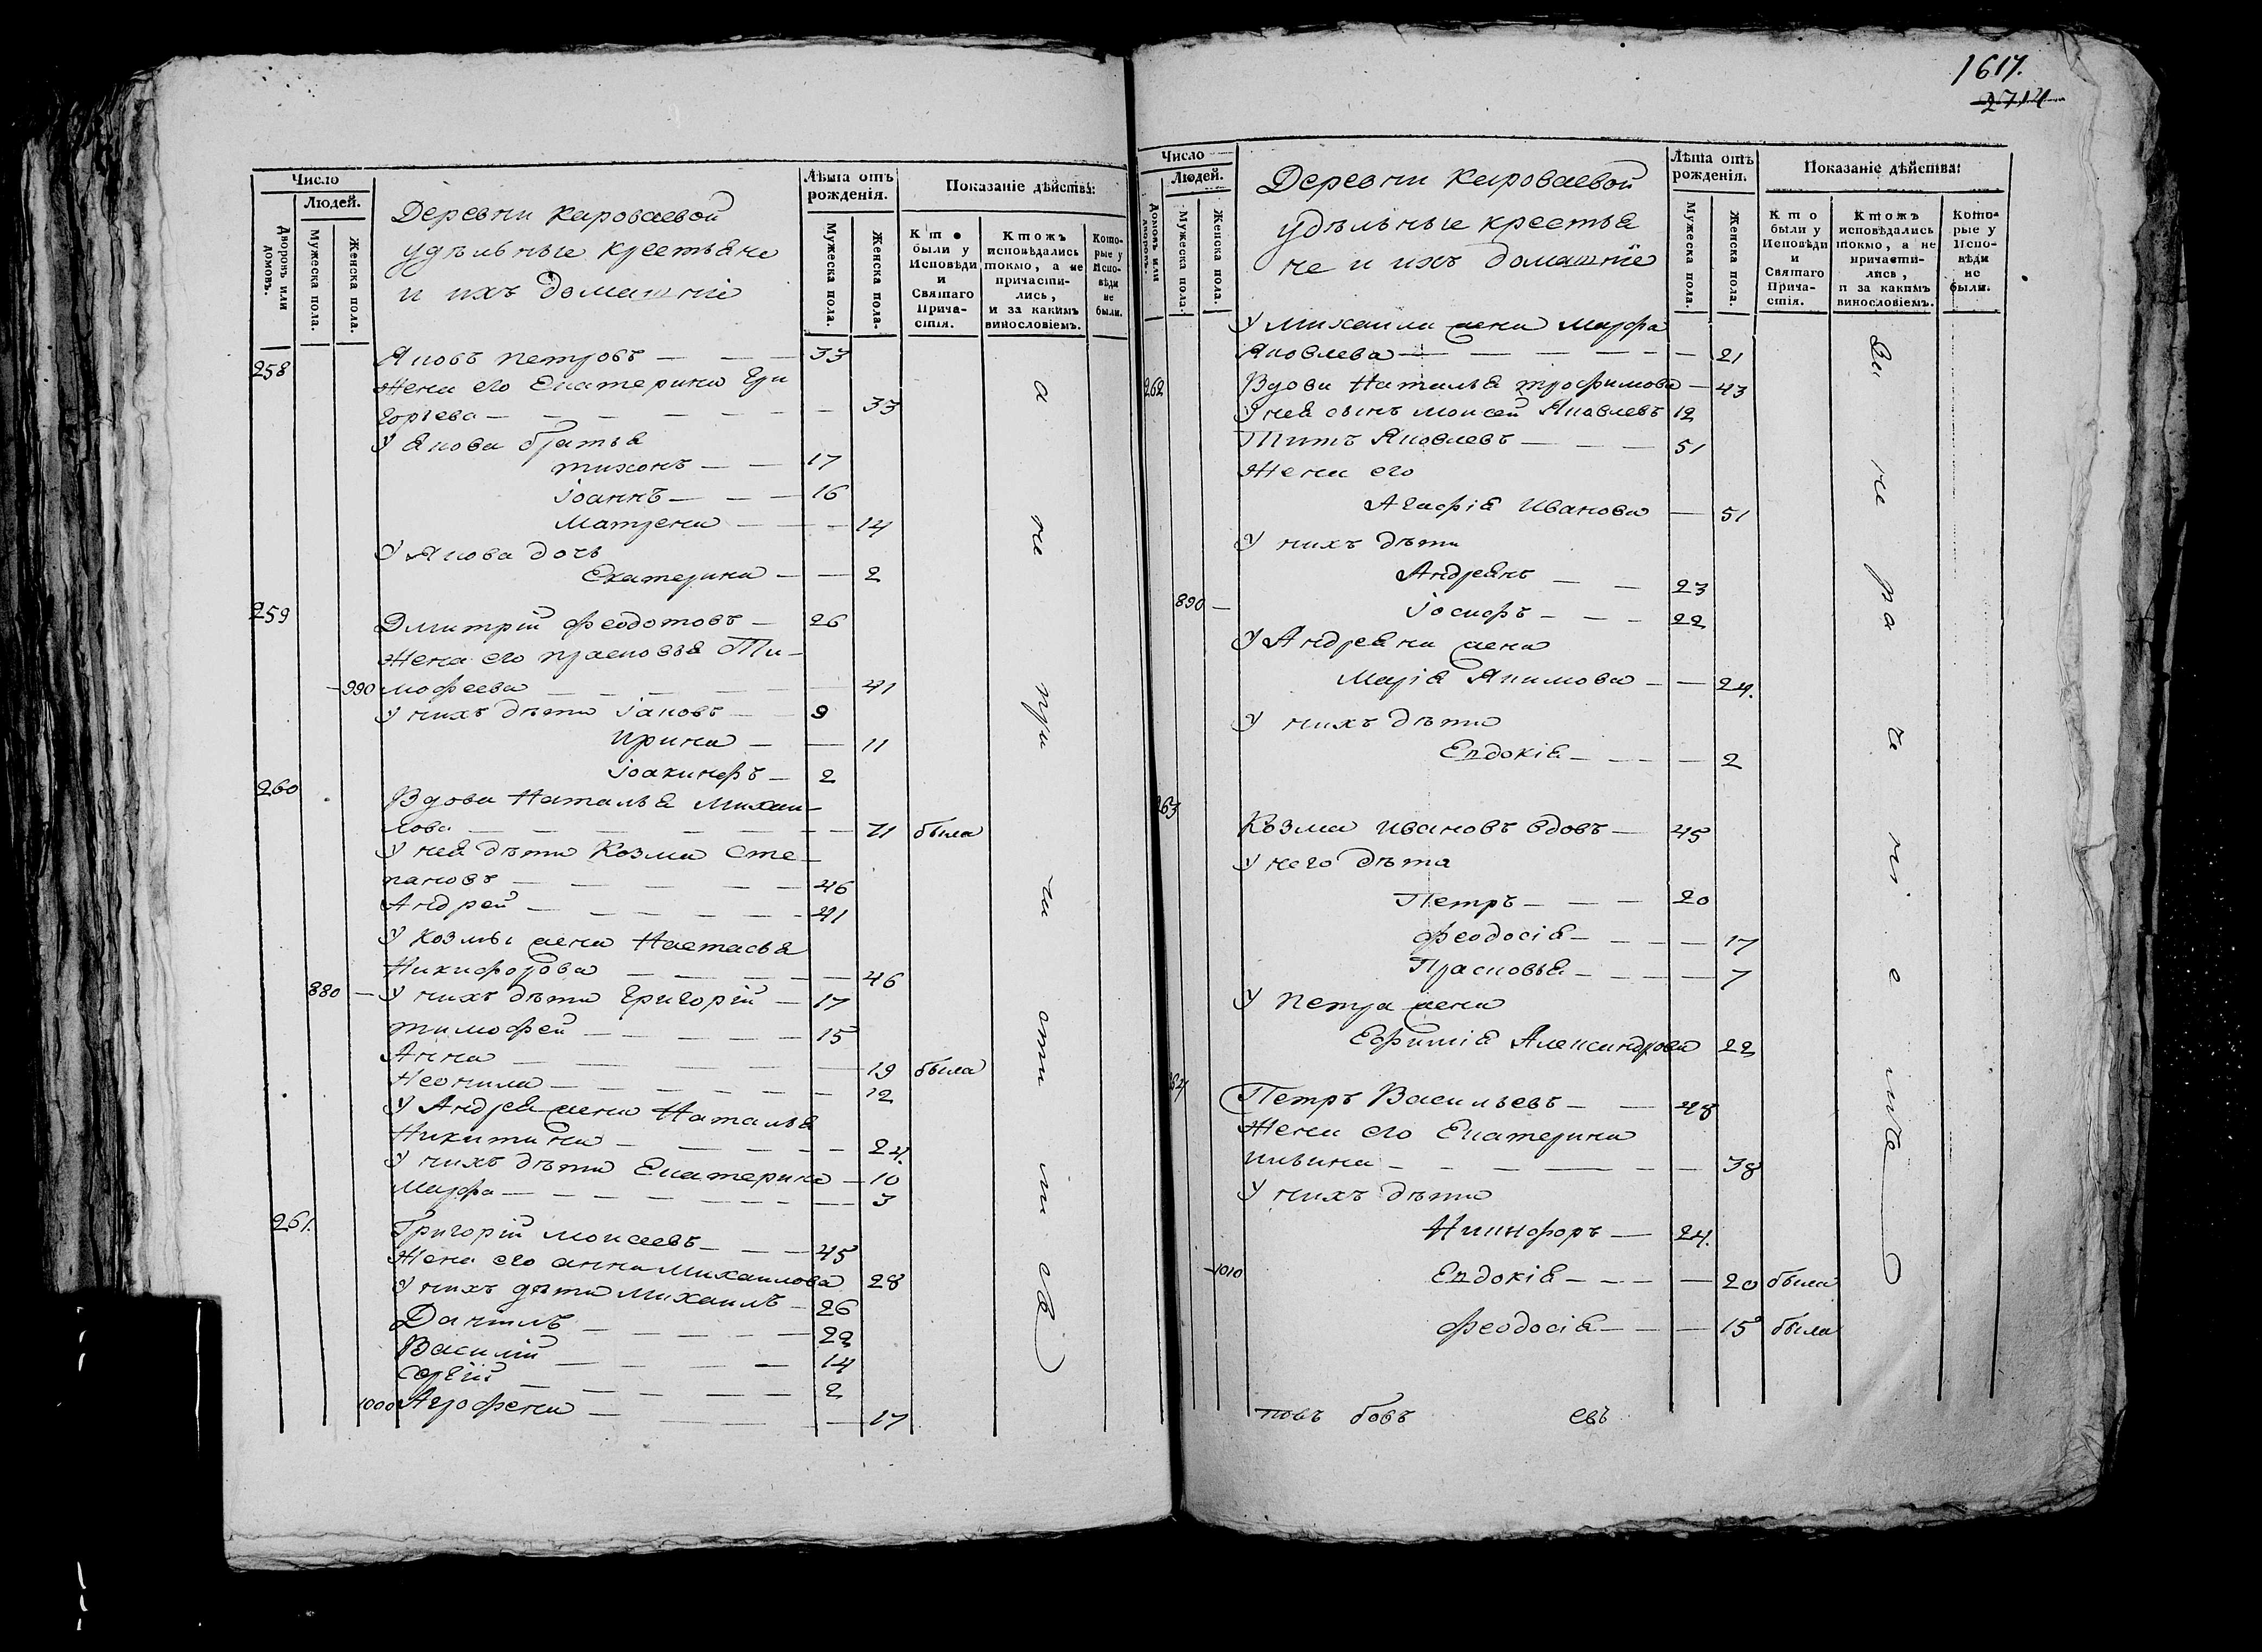 Число
Людей.
Дворовъ или домовъ.
Мужеска пола.
Женска пола.
Деревни Кароваевой
удѣльные крестьяне
и ихъ домашніе
Лѣта отъ рожденія.
Мужеска пола.
Женска пола.
Показаніе дѣйства:
Кто были у Исповѣди и Святаго Причастія.
Ктожъ исповѣдались токмо, а не причастились, и за какимъ винословіемъ.
Которые у Исповѣди не были.
258 Яковъ Петровъ — — — 33
Жена его Екатерина Гри
горьева — — — — — — 33
У Якова братья
Тихонъ — — 17
Іоаннъ — — — 16
Матрена — — — 14
У Якова дочь
Екатерина — — 2
259 Дмитрій Феодотовъ — 26
Жена его Прасковья Ти-
-990 мофеева — — — — — 41
У нихъ дѣти Іаковъ — — 9
Ирина — — 11
Іоакинфъ — 2
260 Вдова Наталья Михаи-
лова — — — — — — 71 была
У ней дѣти Козма Сте-
пановъ — — — — — 46
Андрей — — — — — — 41
У Козмы жена Настасья
Никифорова — — — — — 46
880 — У нихъ дѣти Григорій — 17
Тимофей — — — — — 15
Анна — — — — — 19 была
Неонила — — — — — — 12
У Андрея жена Наталья
Никитина — — — — — 24.
У нихъ дѣти Екатерина — 10
Марфа — — — — — — — 3
261. Григорій Моисеевъ — — — 45
Жена его Анна Михаилова 28
У нихъ дѣти Михаилъ — 26
Даніилъ — — — — — 22
Василій — — — — — 14
Сергій — — — — — 2
1000 Агрофена — — — — 17
а не при ча сти ли ся
1617.
2714
Число
Людей.
Домовъ или дворовъ.
Мужеска пола.
Женска пола.
Деревни Кароваевой
удѣльные крестья
не и ихъ домашніе
Лѣта отъ рожденія.
Мужеска пола.
Женска пола.
Показаніе дѣйства:
Кто были у Исповѣди и Святаго Причастія.
Ктожъ исповѣдались токмо, а не причастились, и за какимъ винословіемъ.
Которые у Исповѣди не были.
У Михаила жена Марфа
Яковлева — — — — — — 21
262 Вдова Наталья Трофимова — 43
У нея сынъ Моисей Яковлевъ 12
Титъ Яковлевъ — — — 51
Жена его
Агафія Иванова — 51
У нихъ дѣти
Андреянъ — — 23
890 — Іосифъ — — — 22
У Андреяна жена
Марія Якимова — — 24.
У нихъ дѣти
Евдокія — — — — 2
263
Козма Ивановъ вдовъ — 45
У него дѣти
Петръ — — — 20
Феодосія — — — — 17
Прасковья — — — — 7
У Петра жена
Евфимія Александрова 22
264
Петръ Васильевъ — — 48
Жена его Екатерина
Ильина — — — — — — 38
У нихъ дѣти
Никифоръ — 24.
-1010 Евдокія — — — — 20 была
Феодосія — — — 15 была
за не ра че ні е мъ
повъ бовъ евъ